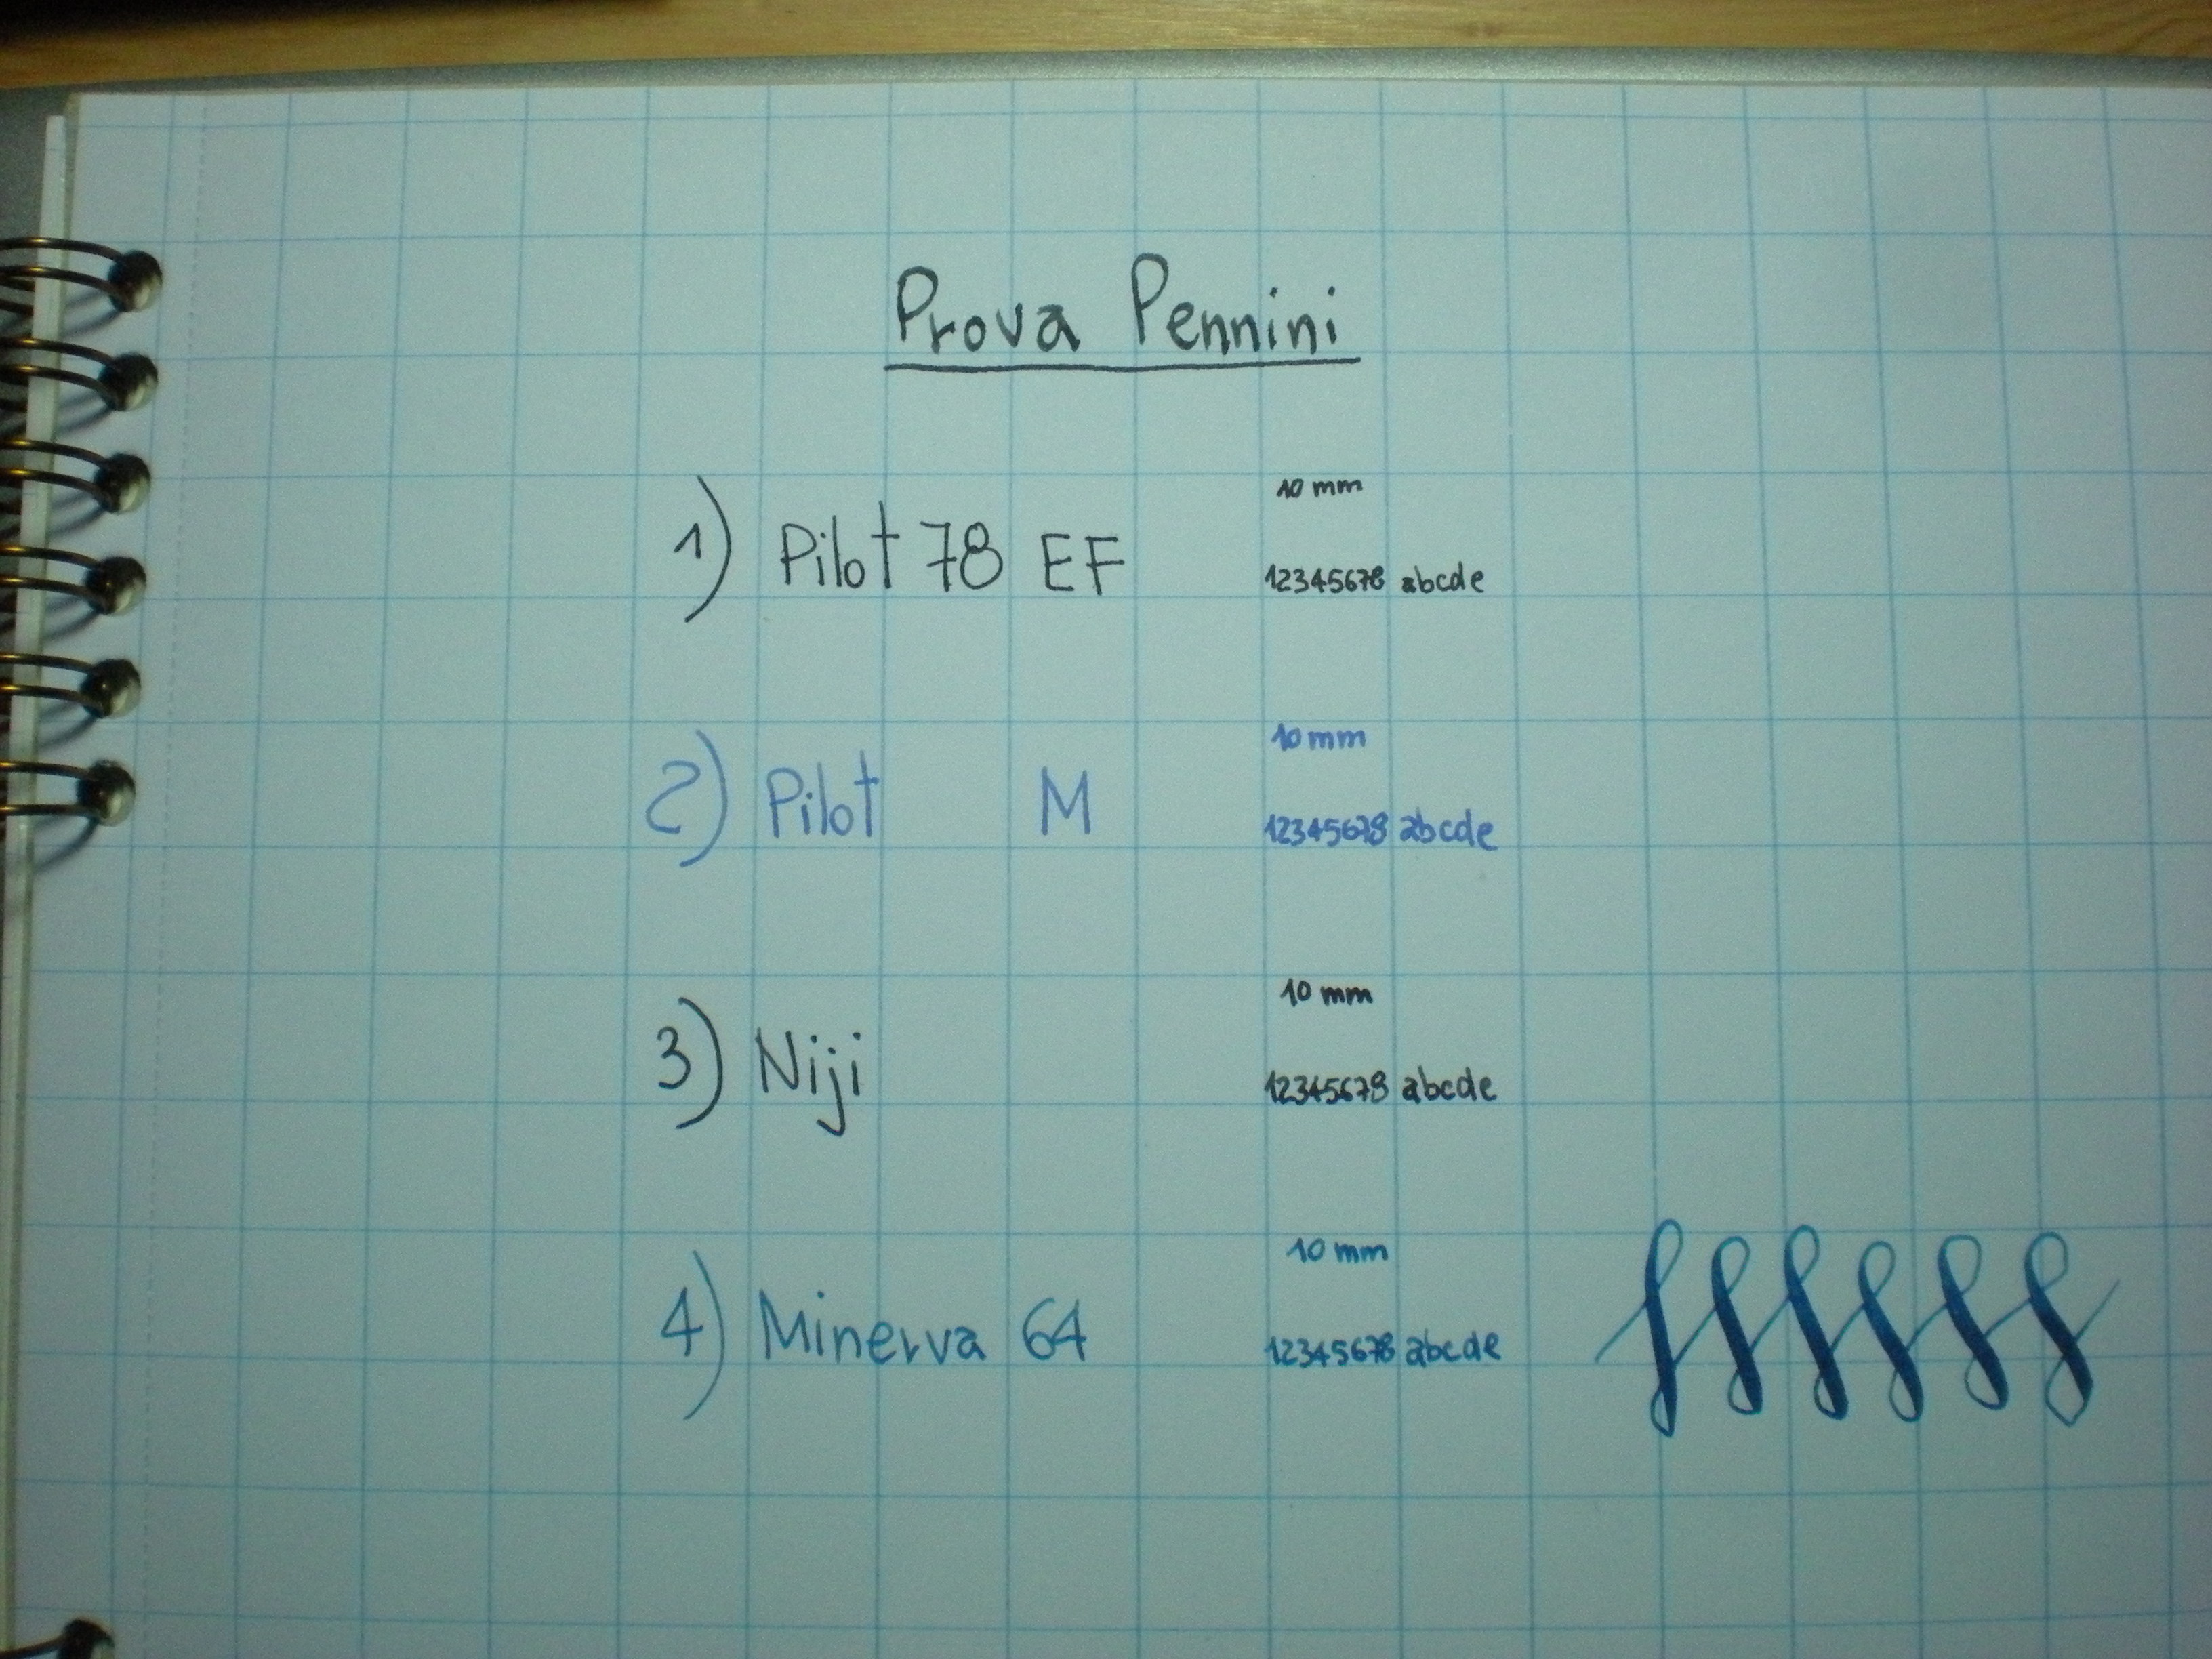 Prova Pennini
10 mm
1) Pilot 78 EF 12345678 abcde
10 mm
2) Pilot M 12345678 abcde
10 mm
3) Niji 12345678 abcde
10 mm
4) Minerva 64 12345678 abcde